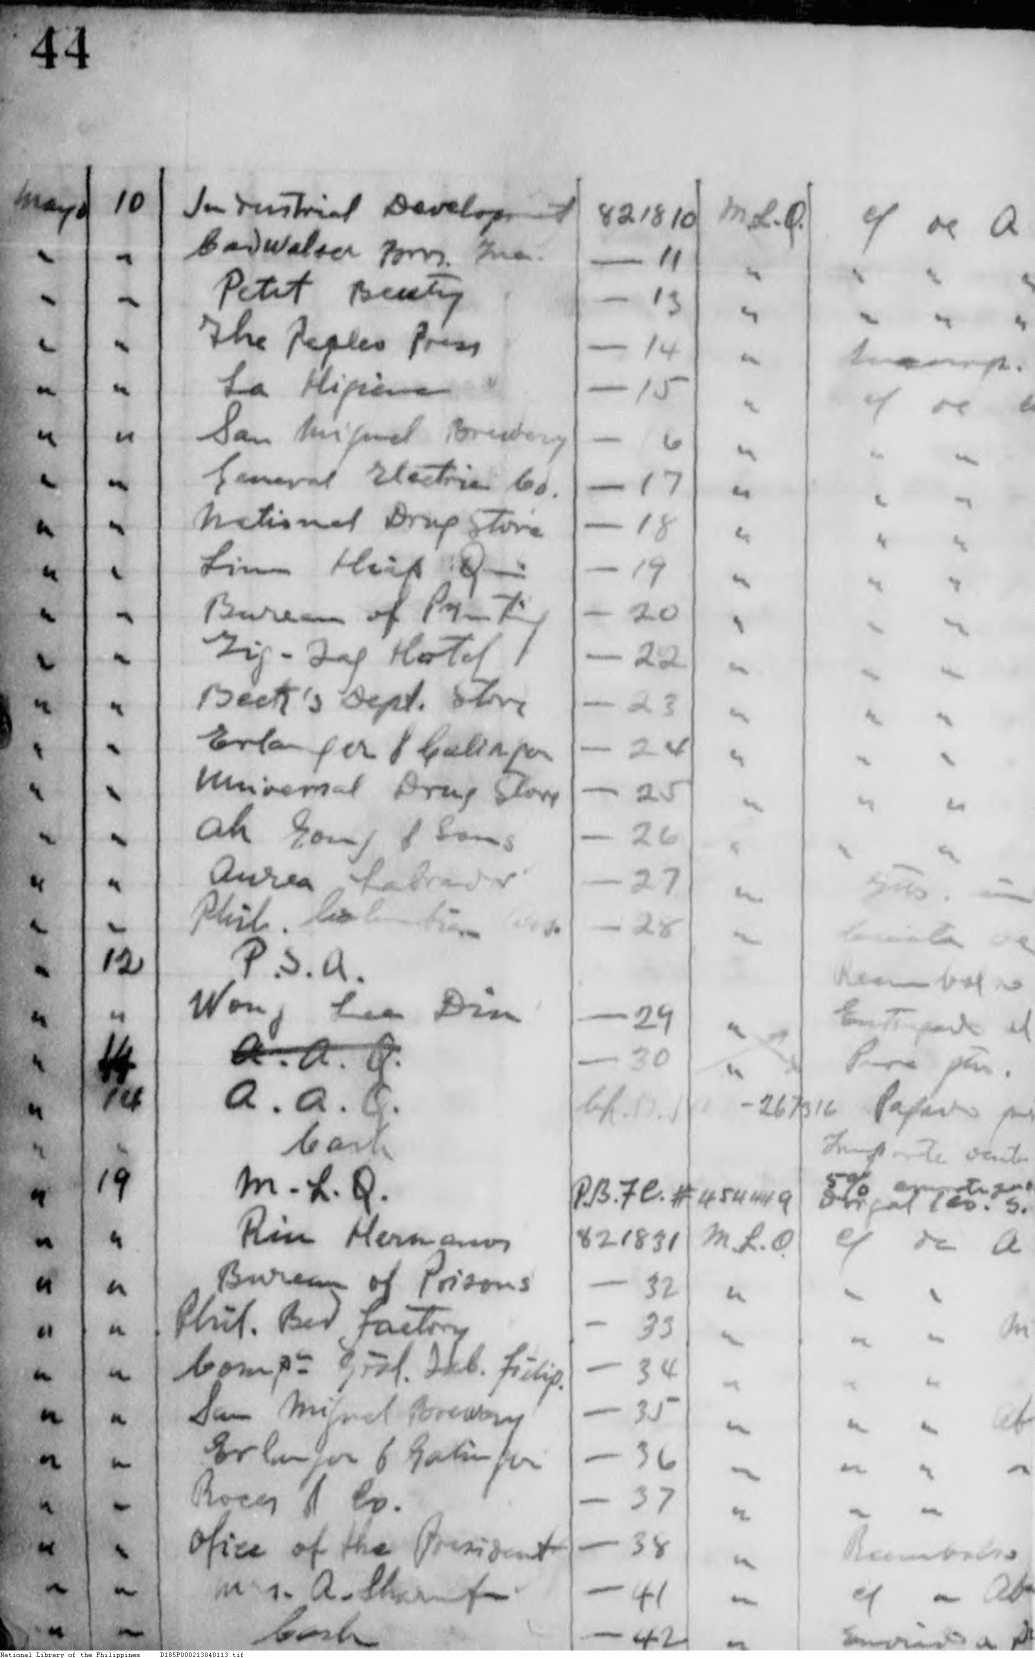 44
Mayo 10 Industrial Development 821810 M.L.Q. c/ de A
" " Cadwalser Bros. Inc. — 11 " " " "
" " Petit Beauty — 13 " " " "
" " The Peples Press — 14 "
" " La Higiene " — 15 " c/ de
" " San Miguel Brewery — 6 " " "
" " General Electric Co. — 17 " " "
" " National Drug Store — 18 " " "
" " Lim Hua — 19 " " "
" " Bureau of Printing — 20 " " "
" " Zig-Zag Hotel — 22 " " "
" " Beck's Dept. Store — 23 " " "
" " Erlanger & Galinger — 24 " " "
" " Universal Drug Store — 25 " " "
" " Ah Gong & Sons — 26 " " "
" " Aurea Labrador — 27 " gtos.
" " Phil. Columbian — 28 "
" 12 P.S.A. Reembolso
" " Wong Lee Din — 29 " Entregado al
" 14 A.A.Q. — 30 " Para gtos.
" 14 A.A.Q. -267316 Pagado
" " Cash Importe
" 19 M.L.Q. P.B.7C. #454449 5%
" " Riu Hermanos 821831 M.L.Q. c/ de A
" " Bureau of Prisons — 32 " " "
" " Phil. Bed Factory — 33 " " " M
" " Comp= Gral. Tab. Filip. — 34 " " "
" " San Miguel Brewery — 35 " " " Ab
" " Erlanger & Galinger — 36 " " " "
" " Roces & Co. — 37 " " "
" " Ofice of the President — 38 " Reembolso
" " Mrs. A. — 41 " c/ " Ab
" " Cash — 42 "
National Library of the Philippines D185P000213040113.tif